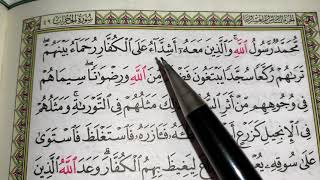 سُورَةُ الحُجُرَاتِ ٤٩
مُّحَمَّدٌ رَّسُولُ ٱللَّهِ وَٱلَّذِينَ مَعَهُۥٓ أَشِدَّآءُ عَلَى ٱلْكُفَّارِ رُحَمَآءُ بَيْنَهُمْ
تَرَىٰهُمْ رُكَّعًا سُجَّدًا يَبْتَغُونَ مِّنَ ٱللَّهِ وَرِضْوَٰنًا سِيمَاهُمْ
فِى وُجُوهِهِم مِّنْ أَثَرِ مَثَلُهُمْ فِى ٱلتَّوْرَىٰةِ وَمَثَلُهُمْ
فِى ٱلْإِنجِيلِ كَزَرْعٍ فَـَٔازَرَهُۥ فَٱسْتَغْلَظَ فَٱسْتَوَىٰ
عَلَىٰ سُوقِهِۦ لِيَغِيظَ بِهِمُ ٱلْكُفَّارَ وَعَدَ ٱللَّهُ ٱلَّذِينَ